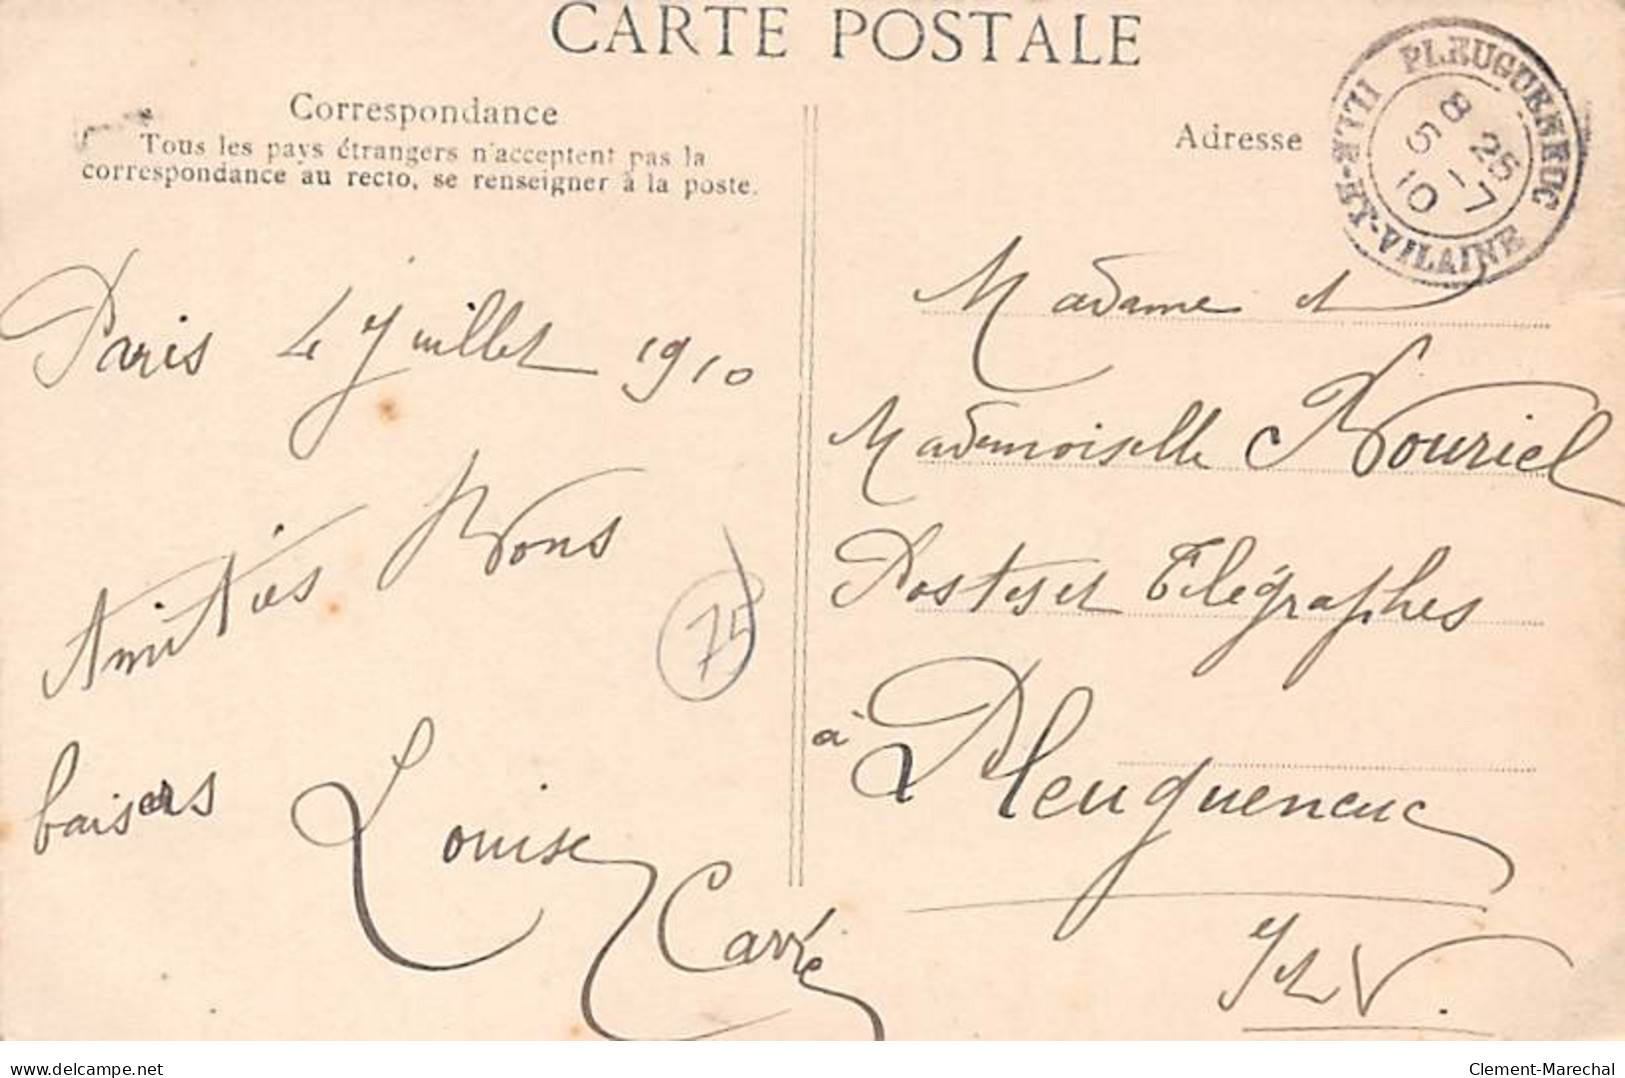 CARTE POSTALE
Correspondance
Tous les pays étrangers n'acceptent pas la
correspondance au recto, se renseigner à la poste.
Paris 4 Juillet 1910
Amitiés Bons
baisers Louise
Carré
75
Adresse
PLEUGUENEUC
ILLE-ET-VILAINE
8 25
5 - 7
10
Madame et
Mademoiselle Bouriel
Postes et Télégraphes
à Pleugueneuc
I et V.
delcampe.net
Clement-Marechal